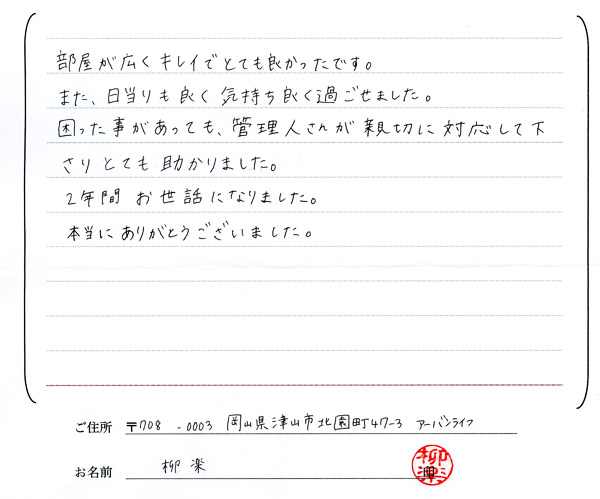 部屋が広くキレイでとても良かったです。
また、日当りも良く気持ち良く過ごせました。
困った事があっても、管理人さんが親切に対応して下
さりとても助かりました。
2年間 お世話になりました。
本当にありがとうございました。
ご住所 〒708 -0003 岡山県津山市北園町47-3 アーバンライフ
お名前 柳 楽 印
柳楽